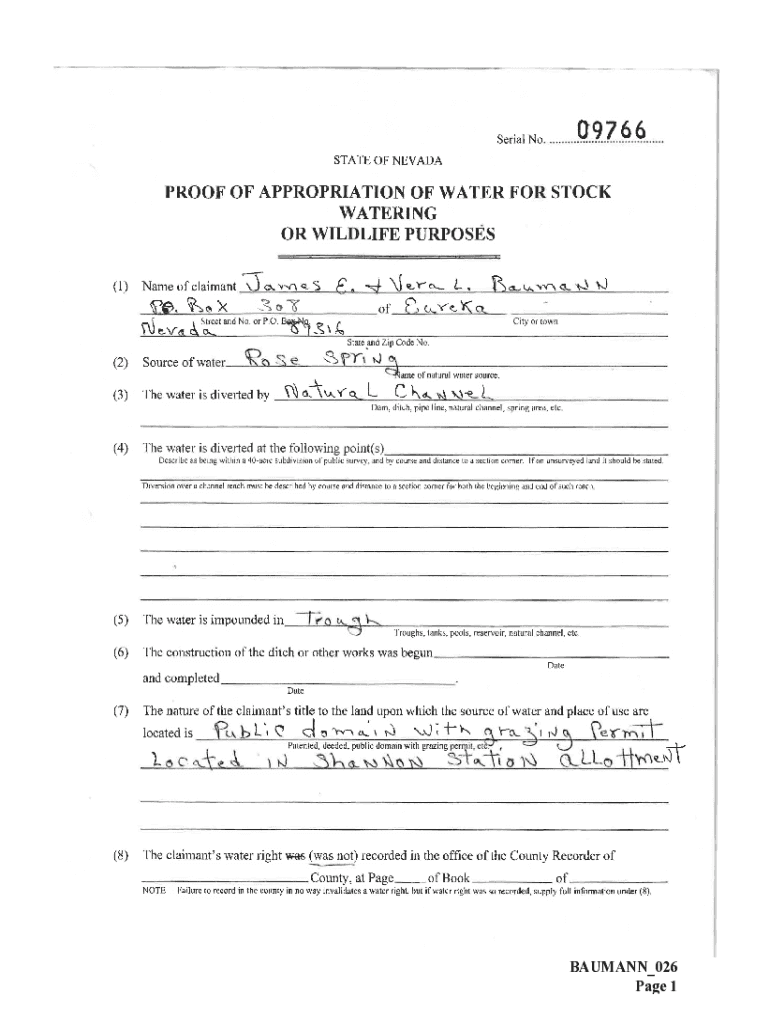 Serial No. 09766
STATE OF NEVADA
PROOF OF APPROPRIATION OF WATER FOR STOCK
WATERING
OR WILDLIFE PURPOSES
(1) Name of claimant James E. + Vera L. Baumann
P.O. Box 308 of Eureka
Street and No. or P.O. Box No. City or town
Nevada 89316
State and Zip Code No.
(2) Source of water Rose Spring
Name of natural water source.
(3) The water is diverted by Natural Channel
Dam, ditch, pipe line, natural channel, spring area, etc.
(4) The water is diverted at the following point(s)
Describe as being within a 40-acre subdivision of public survey, and by course and distance to a section corner. If on unsurveyed land it should be stated.
Diversion over a channel reach must be described by course and distance to a section corner for both the beginning and end of such reach.
(5) The water is impounded in Trough
Troughs, tanks, pools, reservoir, natural channel, etc.
(6) The construction of the ditch or other works was begun
Date
and completed .
Date
(7) The nature of the claimant's title to the land upon which the source of water and place of use are
located is Public domain with grazing Permit
Patented, deeded, public domain with grazing permit, etc.
Located in Shannon Station allottment
(8) The claimant's water right was (was not) recorded in the office of the County Recorder of
County, at Page of Book of
NOTE Failure to record in the county in no way invalidates a water right, but if water right was so recorded, supply full information under (8).
BAUMANN_026
Page 1